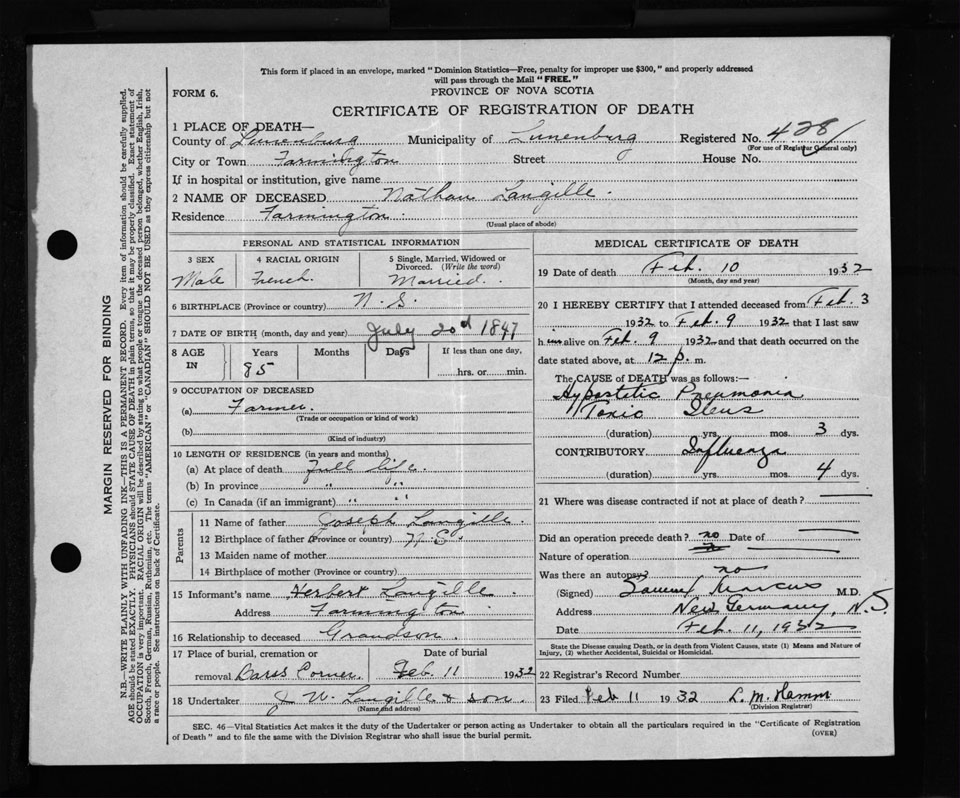 This form if placed in an envelope, marked "Dominion Statistics—Free, penalty for improper use $300," and properly addressed
will pass through the Mail "FREE."
FORM 6.
PROVINCE OF NOVA SCOTIA
CERTIFICATE OF REGISTRATION OF DEATH
1 PLACE OF DEATH—
County of Lunenburg Municipality of Lunenburg Registered No. 428
(For use of Registrar General only)
City or Town Farmington Street House No.
If in hospital or institution, give name
2 NAME OF DECEASED Nathan Langille.
Residence Farmington.
(Usual place of abode)
PERSONAL AND STATISTICAL INFORMATION
3 SEX 4 RACIAL ORIGIN 5 Single, Married, Widowed or
Divorced. (Write the word)
Male French. Married.
6 BIRTHPLACE (Province or country) N.S.
7 DATE OF BIRTH (month, day and year) July 20d 1847
8 AGE IN Years Months Days If less than one day,
85 hrs. or min.
9 OCCUPATION OF DECEASED
(a) Farmer.
(Trade or occupation or kind of work)
(b)
(Kind of industry)
10 LENGTH OF RESIDENCE (in years and months)
(a) At place of death Full life.
(b) In province " "
(c) In Canada (if an immigrant) " "
Parents
11 Name of father Joseph Langille.
12 Birthplace of father (Province or country) N.S.
13 Maiden name of mother
14 Birthplace of mother (Province or country)
15 Informant's name Herbert Langille.
Address Farmington.
16 Relationship to deceased Grandson.
17 Place of burial, cremation or Date of burial
removal Barss Corner. Feb. 11 1932
18 Undertaker J W. Langille & son.
(Name and address)
MEDICAL CERTIFICATE OF DEATH
19 Date of death Feb. 10 1932
(Month, day and year)
20 I HEREBY CERTIFY that I attended deceased from Feb. 3
1932 to Feb. 9 1932 that I last saw
him alive on Feb. 9 1932 and that death occurred on the
date stated above, at 12 p. m.
The CAUSE of DEATH was as follows:—
Hypostatic Pneumonia
Toxic Ileus
(duration) yrs. mos. 3 dys.
CONTRIBUTORY Influenza
(duration) yrs. mos. 4 dys.
21 Where was disease contracted if not at place of death?
Did an operation precede death? no Date of
Nature of operation
Was there an autopsy? no
(Signed) Marcus M.D.
Address New Germany, N.S
Date Feb. 11, 1932
State the Disease causing Death, or in death from Violent Causes, state (1) Means and Nature of
Injury, (2) whether Accidental, Suicidal or Homicidal.
22 Registrar's Record Number
23 Filed Feb 11 1932 L. M. Hamm
(Division Registrar)
SEC. 46—Vital Statistics Act makes it the duty of the Undertaker or person acting as Undertaker to obtain all the particulars required in the "Certificate of Registration
of Death" and to file the same with the Division Registrar who shall issue the burial permit.
(OVER)
MARGIN RESERVED FOR BINDING
N.B.—WRITE PLAINLY WITH UNFADING INK—THIS IS A PERMANENT RECORD. Every item of information should be carefully supplied.
AGE should be stated EXACTLY. PHYSICIANS should STATE CAUSE OF DEATH in plain terms, so that it may be properly classified. Exact statement of
OCCUPATION is very important. RACIAL ORIGIN will be described by stating to what people or tongue the deceased person belonged, whether English, Irish,
Scotch, French, German, Russian, Ruthenian, etc. The terms "AMERICAN" or "CANADIAN" SHOULD NOT BE USED as they express citizenship but not
a race or people. See instructions on back of Certificate.